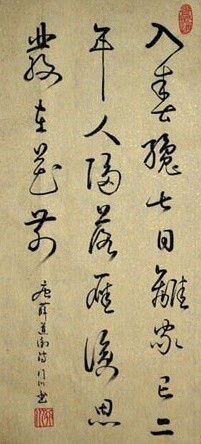 入春纔七日離家已二
年人歸落雁後思
發在花前
唐薛道衡詩